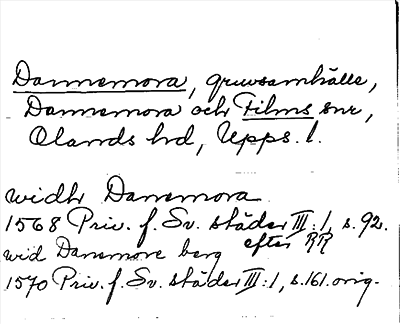 Dannemora, gruvsamhälle,
Dannemora och Films snr,
Olands hd, Upps. l.
widh Danemora
1568 Priv. f. Sv. städer III:1, s. 92.
efter RR
wid Danemore berg
1570 Priv. f. Sv. städer III:1, s. 161. orig.